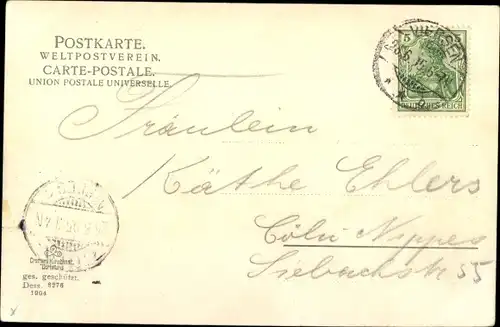 POSTKARTE.
WELTPOSTVEREIN.
CARTE-POSTALE.
UNION POSTALE UNIVERSELLE
VIERSEN
DEUTSCHES REICH
Fräulein
Käthe Ehlers
Cöln Nippes
Siebachstr 55
ges. geschützt.
Dess. 8276
1904